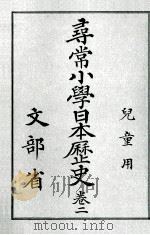 兒童用
尋常小學日本歷史 卷二
文部省
www.gxcxw.com